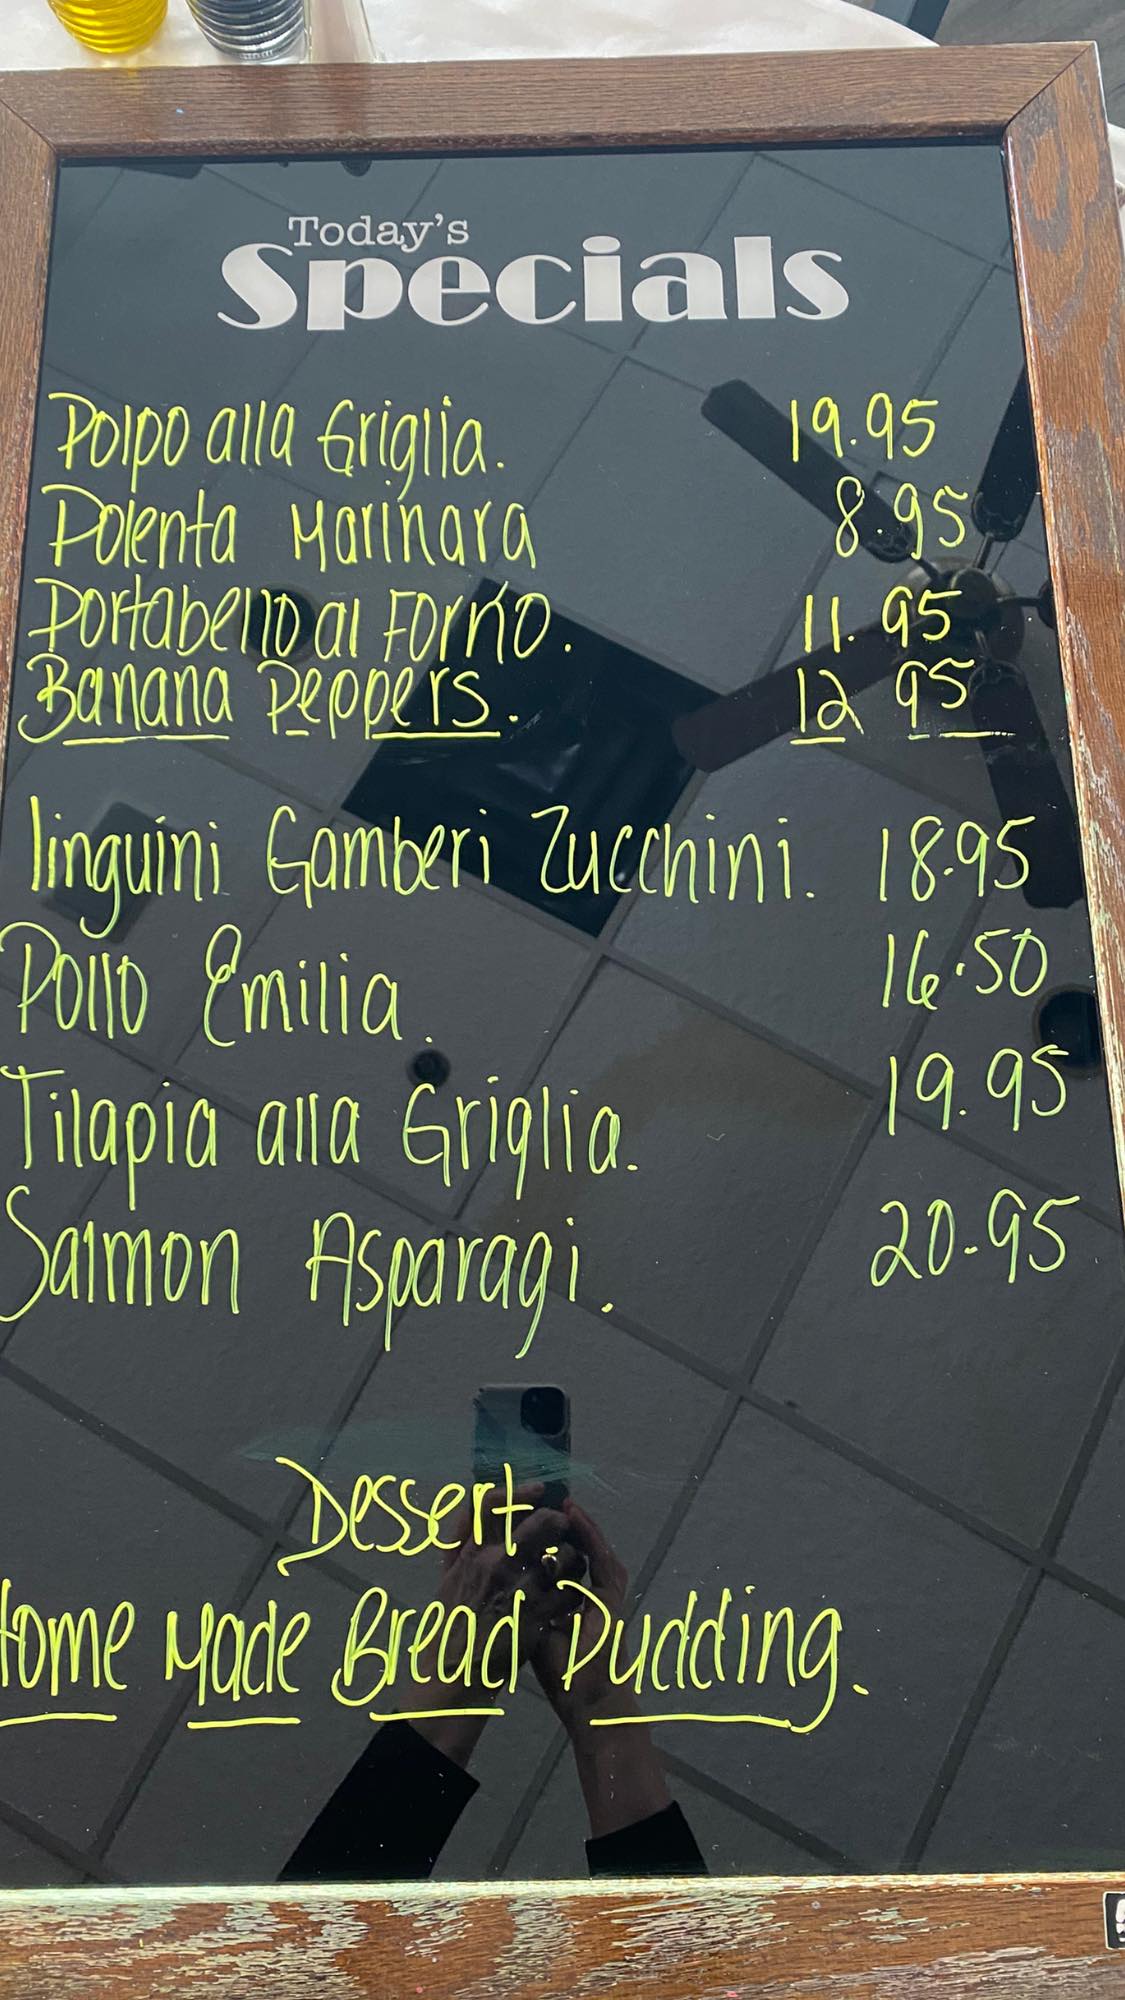 Today's
Specials
Polpo alla Griglia. 19.95
Polenta Marinara 8.95
Portabello al Forno. 11.95
Banana Peppers. 12 95
linguini Gamberi Zucchini. 18.95
Pollo Emilia. 16.50
Tilapia alla Griglia. 19.95
Salmon Asparagi. 20.95
Dessert.
Home Made Bread Pudding.